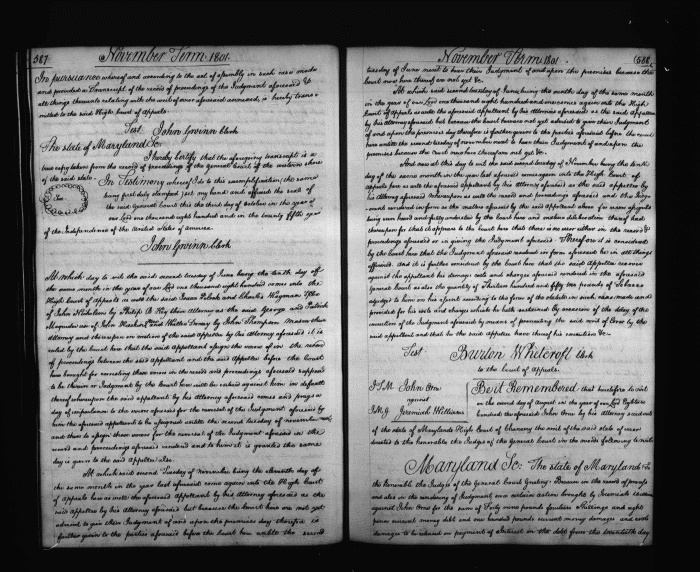 587 November Term 1801.
In pursuance whereof and according to the act of assembly in such case made
and provided a Transcript of the record of proceedings of the Judgment aforesaid &
all things thereunto relating with the writ of error aforesaid annexed, is hereby trans-
mitted to the said High Court of Appeals
Test John Gwinn Clerk
The State of Maryland Sc.
I hereby certify that the aforegoing transcript is a
true copy taken from the record of proceedings of the General Court of the western shore
of the said state.
In Testimony whereof I do to this exemplification (the same
being first duly stamped) set my hand and affixed the seal of
the said General Court this the third day of October in the year of
our Lord one thousand eight hundred and in the twenty fifth year
of the Independence of the United States of America.
John Gwinn Clerk
At which day to wit the said second tuesday of June being the tenth day of
the same month in the year of our Lord one thousand eight hundred comes into the
High Court of Appeals as well the said and Charles Wayman
of John Nicholson by Philip B Key their Attorney as the said George and Patrick
of John and Walter Dorsey by John Thompson Mason their
Attorney and thereupon on motion of the said appellee by his Attorney aforesaid it is
ruled by the court here that the said Appellant assign the errors of in the record
of proceedings between the said appellant and the said Appellee before the Court
here brought for correcting those errors in the record and proceedings aforesaid supposed
to be therein or Judgment by the Court here will be rendered against him in default
thereof whereupon the said appellant by his Attorney aforesaid comes and prays a
day of imparlance to the errors aforesaid for the reversal of the Judgment aforesaid by
him the aforesaid appellant to be assigned untill the second tuesday of november next
and then to assign those errors for the reversal of the Judgment aforesaid in the
record and proceedings aforesaid rendered and to him it is granted the same
day is given to the said Appellee also.
At which said second Tuesday of November being the eleventh day of
the same month in the year last aforesaid come again into the High Court of
Appeals here as well the aforesaid appellant by his Attorney aforesaid as the
said appellee by his Attorney aforesaid but because the Court here are not yet
advised to give their Judgment of and upon the premises day therefore is
further given to the parties aforesaid before the Court here untill the second
November Term 1801. 588
tuesday of June next to hear their Judgment of and upon the premises because the
Court now here thereof are not yet &c.
At which said second tuesday of June being the ninth day of the same month
in the year of our Lord one thousand eight hundred and one comes again into the High
Court of Appeals as well the aforesaid appellant by his Attorney aforesaid as the said appellee
by his Attorney aforesaid but because the Court here are not yet advised to give their Judgment
of and upon the premises day therefore is further given to the parties aforesaid before the court
here untill the second tuesday of november next to hear their Judgment of and upon the
premises because the Court now here thereof are not yet &c.
And now at this day to wit the said second tuesday of November being the tenth
day of the same month in the year last aforesaid comes again into the High Court of
Appeals here as well the aforesaid Appellant by his Attorney aforesaid as the said appellee by
his Attorney aforesaid Whereupon as well the record and proceedings aforesaid and the Judg-
ment rendered in form as the matters aforesaid by the said appellant above for errors assigned
being seen heard and fully understood by the Court here and mature deliberation thereof had
thereupon for that it appears to the Court here that there is no error either in the record &
proceedings aforesaid or in giving the Judgment aforesaid. Therefore it is considered
by the Court here that the Judgment aforesaid rendered in form aforesaid be in all things
affirmed. And it is further considered by the Court here that the said Appellee recover
against the appellant his damages costs and charges aforesaid rendered in the aforesaid
General Court as also the quantity of Thirteen hundred and fifty two pounds of Tobacco
adjudged to him on his assent according to the form of the statute in such case made and
provided for his costs and charges which he hath sustained by occasion of the delay of the
execution of the Judgment aforesaid by means of prosecuting the said writ of Error by the
said appellant and that the said Appellee have thereof his execution &c.
Test Burton Whitcroft Clerk
to the Court of Appeals.
John Orme
against
Jeremiah Williams
Be it Remembered that heretofore to wit
on the second day of August in the year of our Lord Eighteen
hundred the aforesaid John Orme by his Attorney sued out
of the state of Maryland High Court of Chancery the writ of the said state of error
directed to the honorable the Judges of the General Court in the words following to wit:
Maryland Sc: The State of Maryland to
the Honorable the Judges of the General Court Greeting: Because in the record of process
and also in the rendering of Judgment on a certain action brought by Jeremiah Williams
against John Orme for the sum of Forty nine pounds fourteen Shillings and eight
pence current money debt and one hundred pounds current money damages and costs
damages to be released on payment of Interest on the debt from the twentieth day